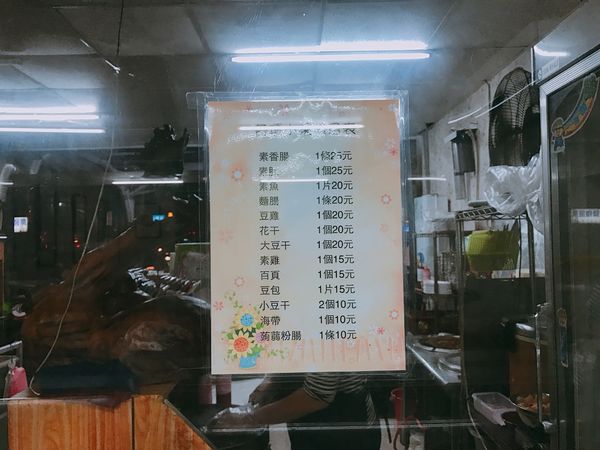 素香腸 1條25元
1個25元
素魚 1片20元
麵腸 1條20元
豆雞 1個20元
花干 1個20元
大豆干 1個20元
素雞 1個15元
百頁 1個15元
豆包 1片15元
小豆干 2個10元
海帶 1個10元
蒟蒻粉腸 1條10元